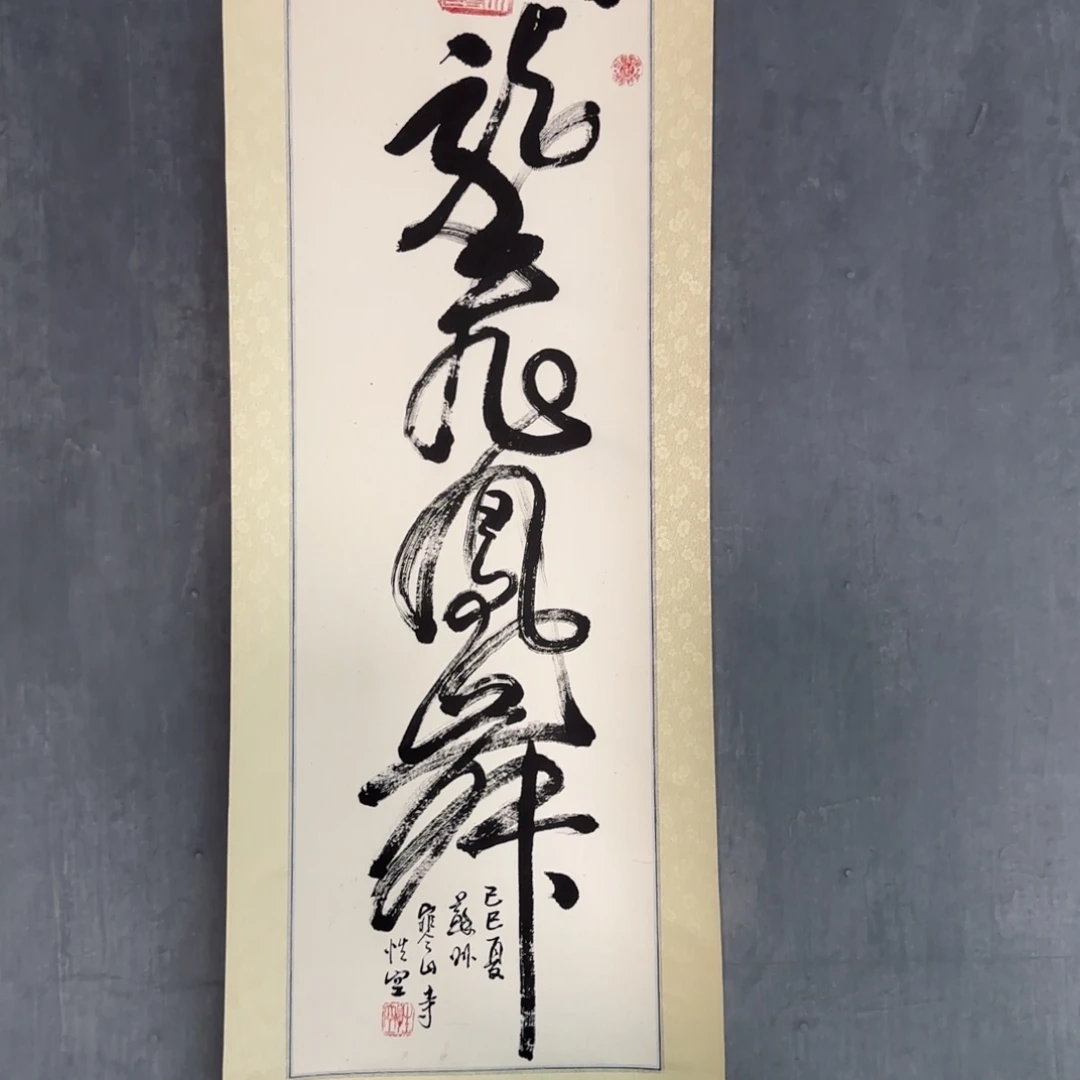 龍飛鳳舞
己巳夏
蘇州
寒山寺
性空